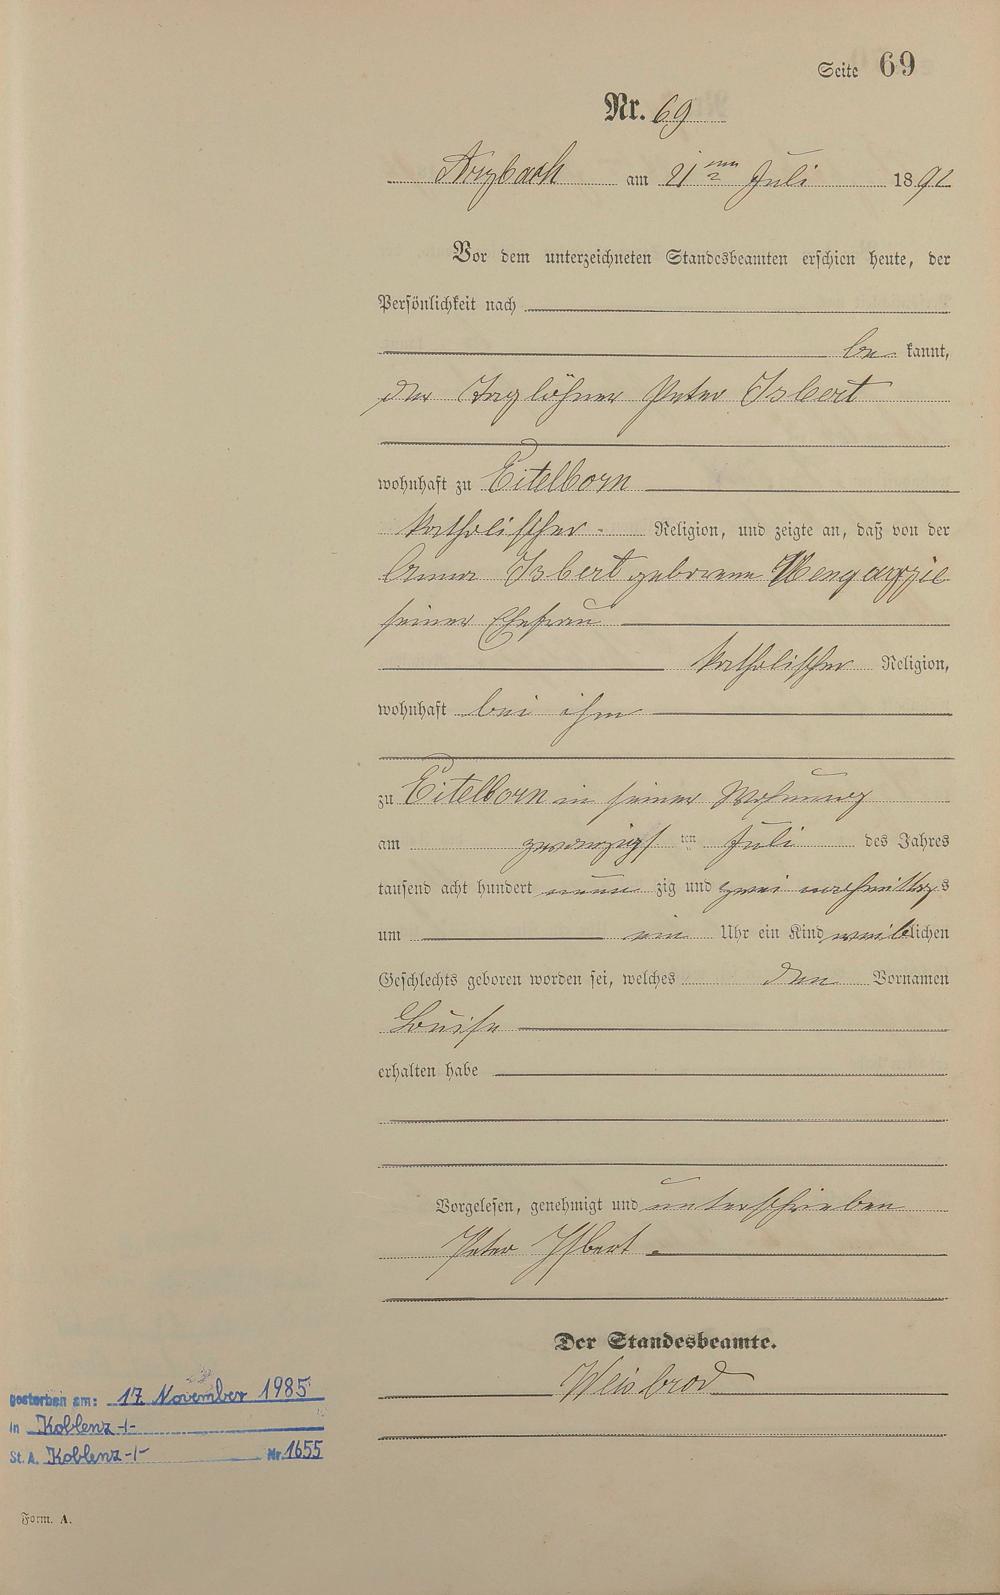 Seite 69
Nr. 69
Arzbach am 21 ten Juli 1892
Vor dem unterzeichneten Standesbeamten erschien heute, der
Persönlichkeit nach
be kannt,
der Taglöhner Peter Isbert
wohnhaft zu Eitelborn
katholischer Religion, und zeigte an, daß von der
Anna Isbert geborene
seiner Ehefrau
katholischer Religion,
wohnhaft bei ihm
zu Eitelborn in seiner Wohnung
am zwanzigsten Juli des Jahres
tausend acht hundert neun zig und zwei nachmittags
um ein Uhr ein Kind weiblichen
Geschlechts geboren worden sei, welches den Vornamen
Louise
erhalten habe
Vorgelesen, genehmigt und unterschrieben
Peter Isbert.
Der Standesbeamte.
Weisbrod
gestorben am: 17. November 1985
in Koblenz -I-
St. A. Koblenz -I- Nr. 1655
Form. A.